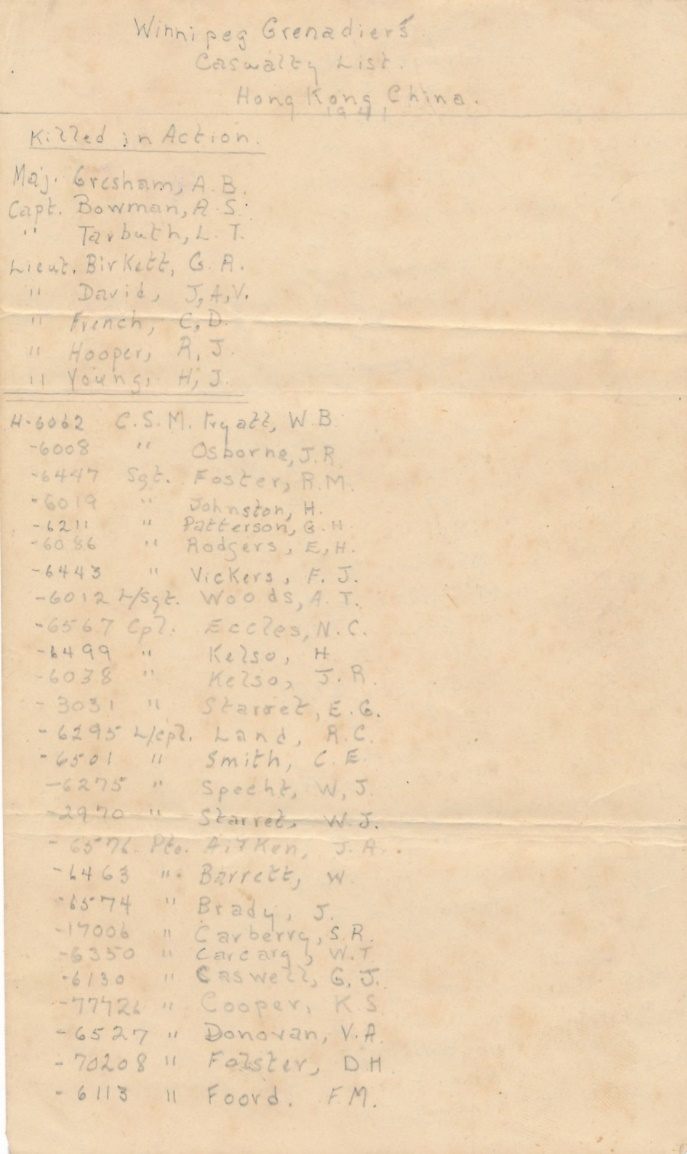 Winnipeg Grenadiers
Casualty List.
Hong Kong China.
1941
Killed in Action.
Maj. Gresham, A.B.
Capt. Bowman, A.S.
" Tarbuth, L.T.
Lieut. Birkett, G.A.
" David, J,A,V.
" French, C,D.
" Hooper, R,J.
" Young, H,J.
H-6062 C.S.M. Fryatt, W.B.
-6008 " Osborne, J.R.
-6447 Sgt. Foster, R.M.
-6019 " Johnston, H.
-6211 " Patterson, G.H.
-6086 " Rodgers, E,H.
-6443 " Vickers, F.J.
-6012 L/Sgt. Woods, A.T.
-6567 Cpl. Eccles, N.C.
-6499 " Kelso, H
-6038 " Kelso, J.R.
-3031 " Starret, E.G.
-6295 L/cpl. Land, R.C.
-6501 " Smith, C.E.
-6275 " Specht, W,J.
-2970 " Starret, W.J.
-6576 Pte. Aitken, J.A.
-6463 " Barrett, W.
-6574 " Brady, J.
-17006 " Carberry, S.R.
-6350 " Carcary, W.T
-6130 " Caswell, G,J.
-77426 " Cooper, K S
-6527 " Donovan, V.A.
-70208 " Folster, D H
-6113 " Foord. F.M.